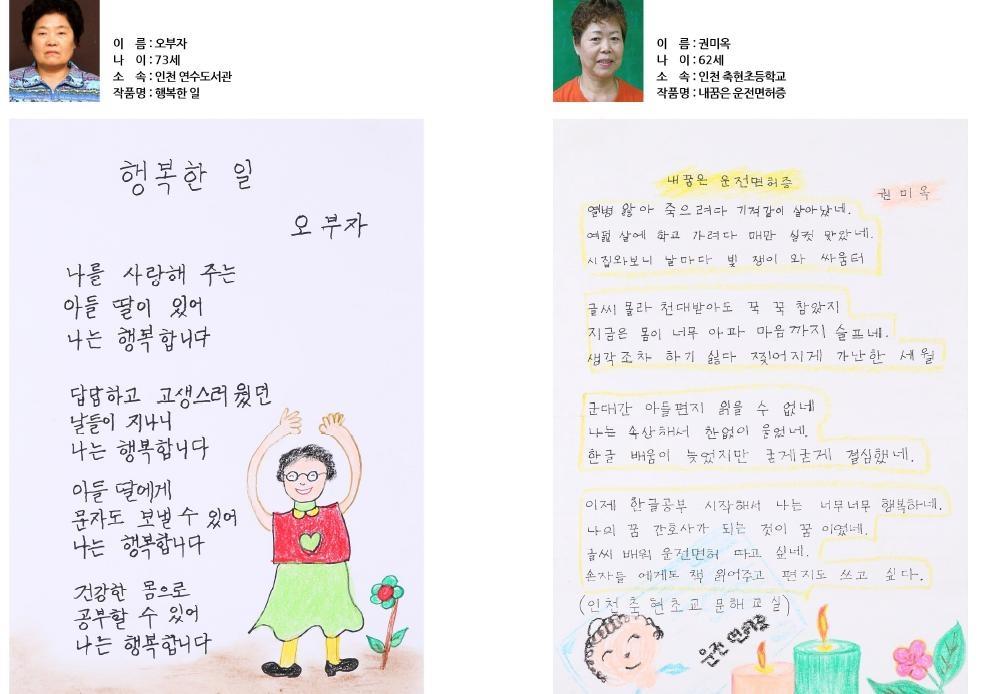 이 름 : 오부자
나 이 : 73세
소 속 : 인천 연수도서관
작품명 : 행복한 일
행복한 일
오 부자
나를 사랑해 주는
아들 딸이 있어
나는 행복합니다
답답하고 고생스러웠던
날들이 지나니
나는 행복합니다
아들 딸에게
문자도 보낼 수 있어
나는 행복합니다
건강한 몸으로
공부할 수 있어
나는 행복합니다
이 름 : 권미옥
나 이 : 62세
소 속 : 인천 축현초등학교
작품명 : 내꿈은 운전면허증
내꿈은 운전면허증
권 미 옥
열병 앓아 죽으려다 기적같이 살아났네.
여덟 살에 학교 가려다 매만 실컷 맞았네.
시집와보니 날마다 빚 쟁이 와 싸움터
글씨 몰라 천대받아도 꾹 꾹 참았지
지금은 몸이 너무 아파 마음까지 슬프네.
생각조차 하기 싫다 찢어지게 가난한 세월
군대간 아들편지 읽을 수 없네
나는 속상해서 한없이 울었네.
한글 배움이 늦었지만 굳게굳게 결심했네.
이제 한글공부 시작해서 나는 너무너무 행복하네.
나의 꿈 간호사가 되는 것이 꿈 이였네.
글씨 배워 운전면허 따고 싶네.
손자들 에게도 책 읽어주고 편지도 쓰고 싶다.
(인천 축 현초교 문해교실)
운전 면허증